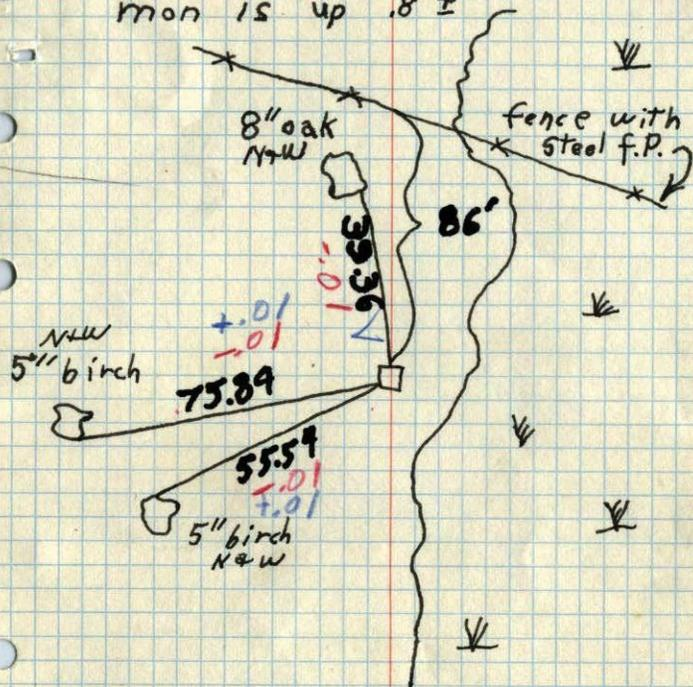 mon is up .8 ±
fence with
steel f.P.
8" oak
N+W
86'
39.36
-.01
+.01
-.01
N+W
5" birch
75.84
55.54
-.01
+.01
5" birch
N&W